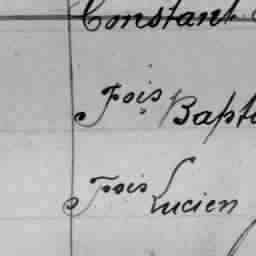 Constant
Fois Bapt
Fois Lucien